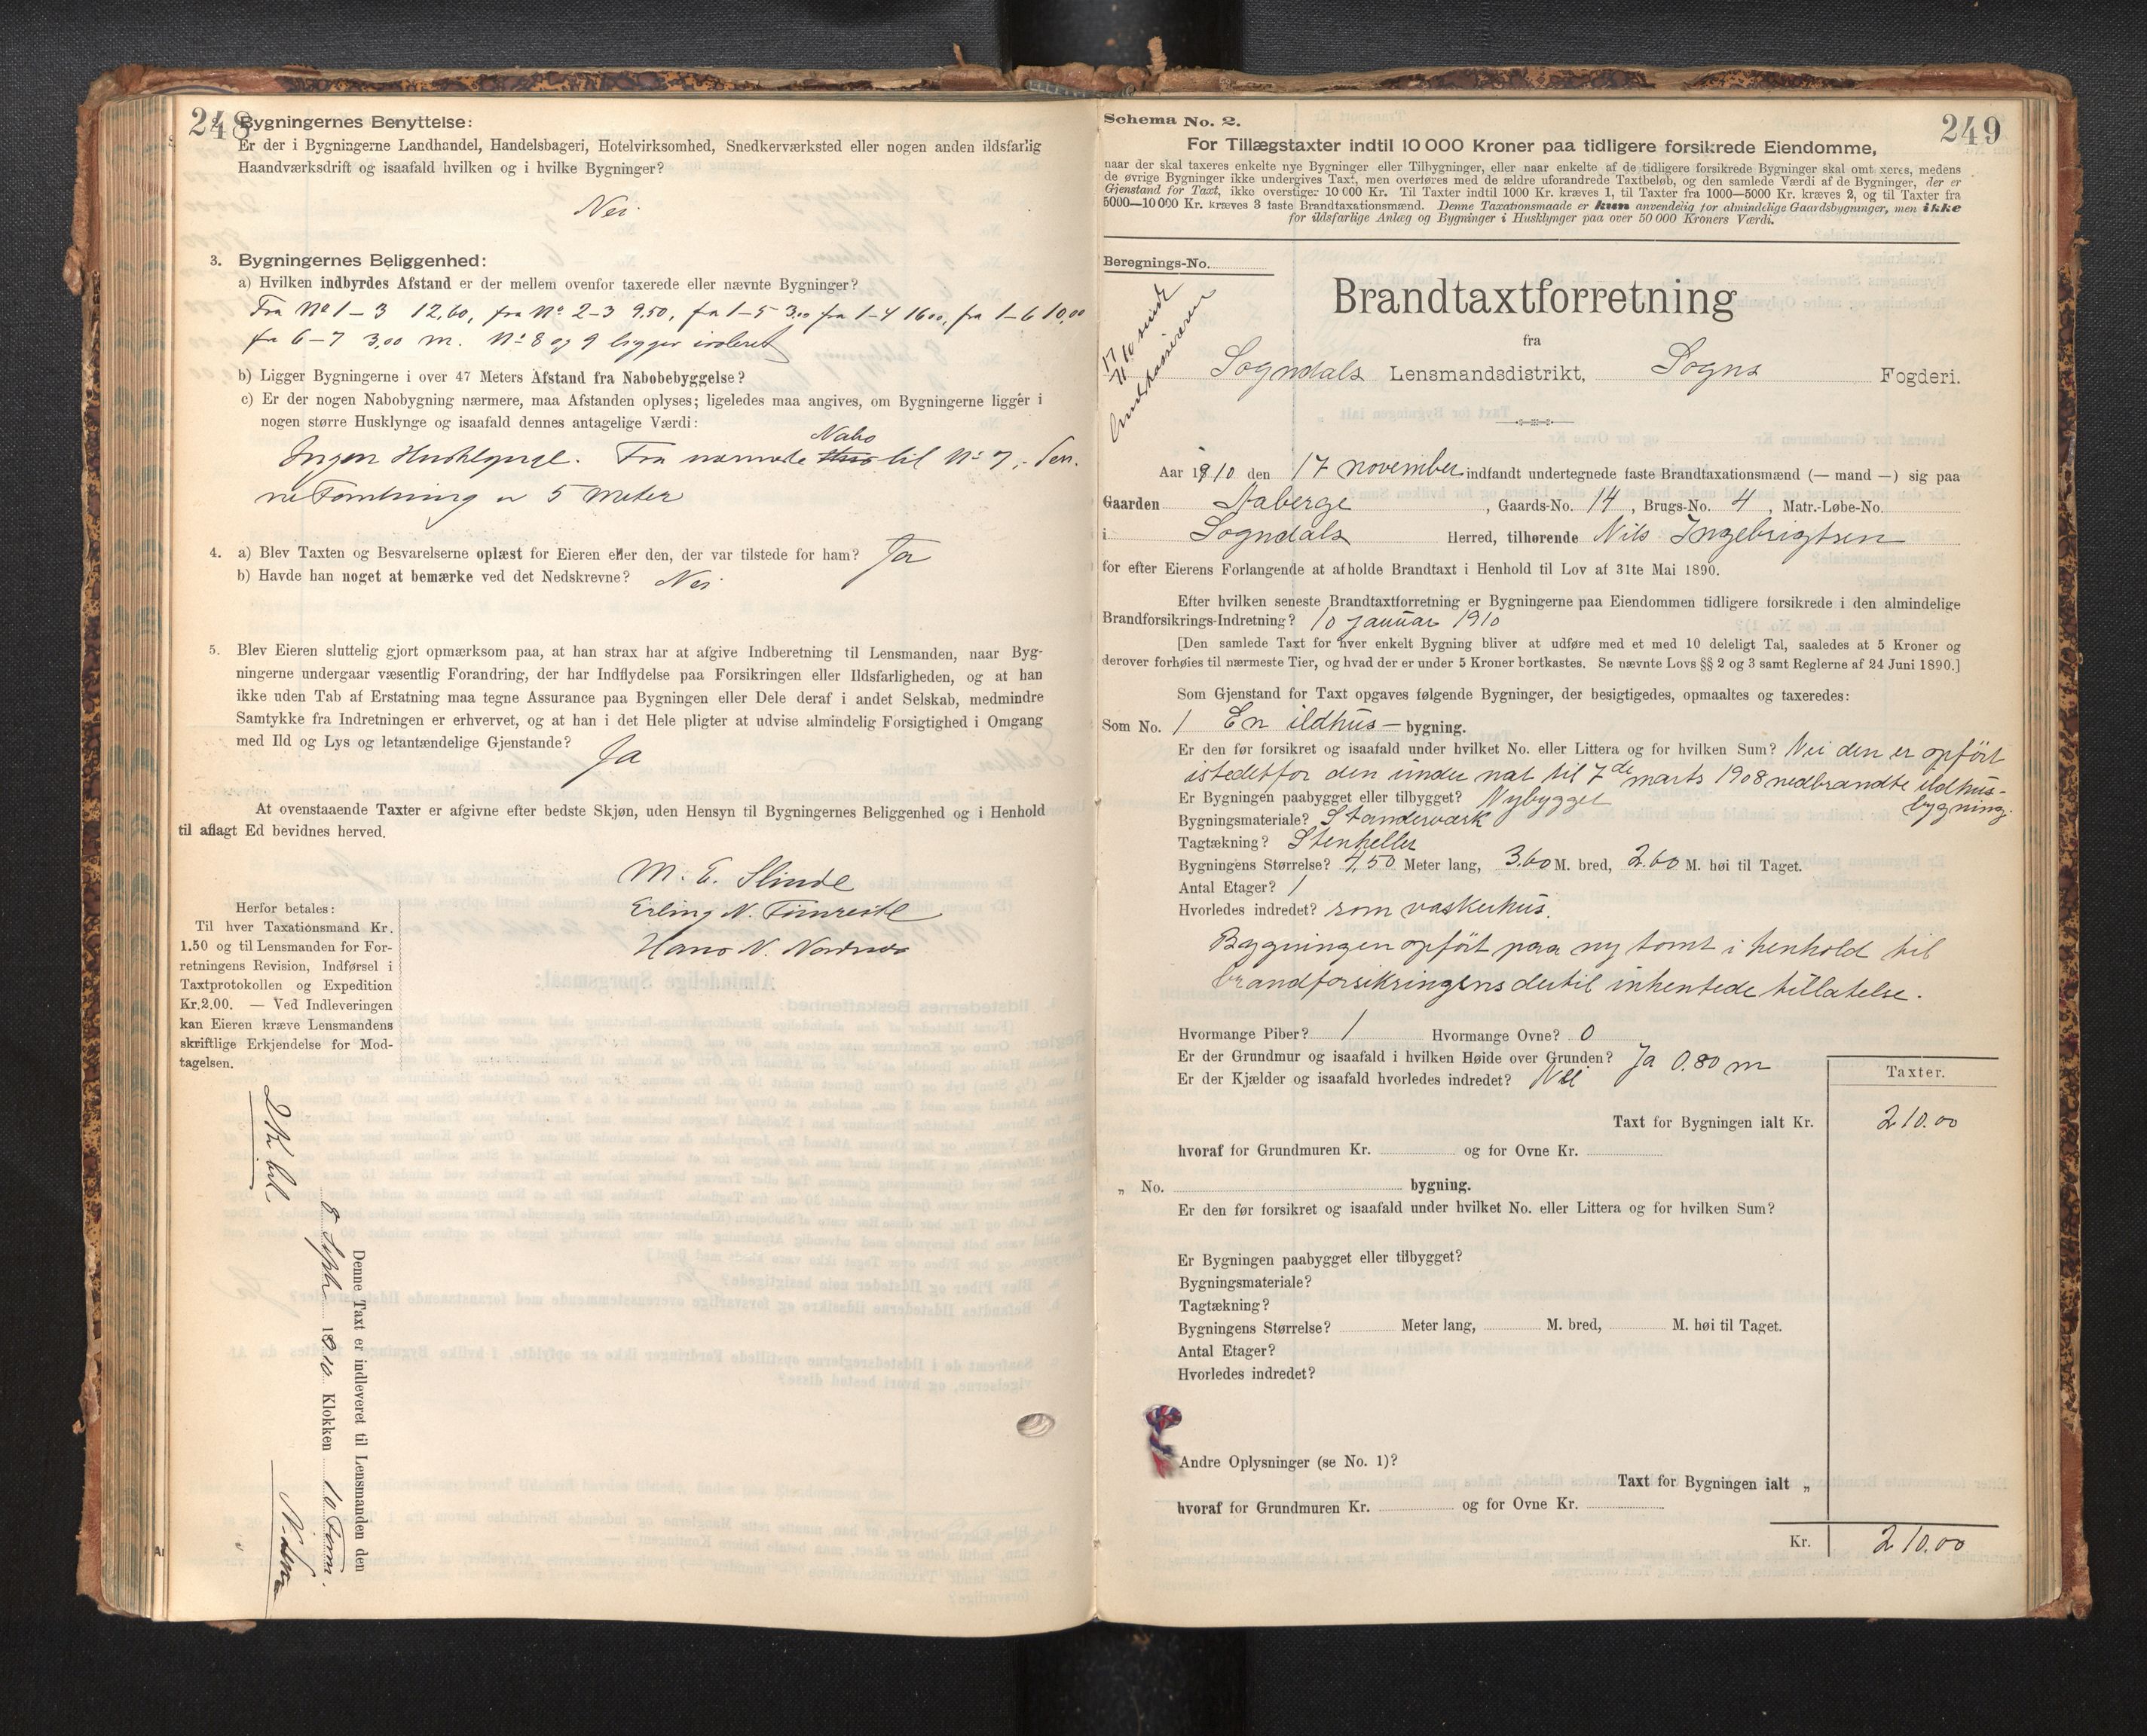 248
2. Bygningernes Benyttelse:
Er der i Bygningerne Landhandel, Handelsbageri, Hotelvirksomhed, Snedkerværksted eller nogen anden ildsfarlig
Haandværksdrift og isaafald hvilken og i hvilke Bygninger?
Nei
3. Bygningernes Beliggenhed:
a) Hvilken indbyrdes Afstand er der mellem ovenfor taxerede eller nævnte Bygninger?
Fra No 1–3 12,60, fra No 2–3 9.50, fa 1–5 3.00 fra 1–4 16.00, fra 1–6 10,00
fr 6–7 3,00 m. No 8 og 9 ligger isoleret
b) Ligger Bygningerne i over 47 Meters Afstand fra Nabobebyggelse?
c) Er der nogen Nabobygning nærmere, maa Afstanden oplyses; ligeledes maa angives, om Bygningerne ligger i
nogen større Husklynge og isaafald dennes antagelige Værdi:
Ingen Husklynge. Fra nærmeste Nabo til No 7,
er 5 Meter
4. a) Blev Taxten og Besvarelserne oplæst for Eieren eller den, der var tilstede for ham? Ja
b) Havde han noget at bemærke ved det Nedskrevne? Nei
5. Blev Eieren sluttelig gjort opmærksom paa, at han strax har at afgive Indberetning til Lensmanden, naar Byg-
ningerne undergaar væsentlig Forandring, der har Indflydelse paa Forsikringen eller Ildsfarligheden, og at han
ikke uden Tab af Erstatning maa tegne Assurance paa Bygningen eller Dele deraf i andet Selskab, medmindre
Samtykke fra Indretningen er erhvervet, og at han i det Hele pligter at udvise almindelig Forsigtighed i Omgang
med Ild og Lys og letantændelige Gjenstande? Ja
At ovenstaaende Taxter er afgivne efter bedste Skjøn, uden Hensyn til Bygningernes Beliggenhed og i Henhold
til aflagt Ed bevidnes herved.
M. E. Slinde
Erling N.
Hans N.
Herfor betales:
Til hver Taxationsmand Kr.
1.50 og til Lensmanden for For-
retningens Revision, Indførsel i
Taxtprotokollen og Expedition
Kr.2.00. — Ved Indleveringen
kan Eieren kræve Lensmandens
skriftlige Erkjendelse for Mod-
tagelsen.
2 Kr bet.
Denne Taxt er indleveret til Lensmanden den
8 Septr 1910 Klokken 10 Form.
249
Schema No. 2.
For Tillægstaxter indtil 10 000 Kroner paa tidligere forsikrede Eiendomme,
naar der skal taxeres enkelte nye Bygninger eller Tilbygninger, eller naar enkelte af de tidligere forsikrede Bygninger skal omtaxeres, medens
de øvrige Bygninger ikke undergives Taxt, men overføres med de ældre uforandrede Taxtbeløb, og den samlede Værdi af de Bygninger, der er
Gjenstand for Taxt, ikke overstiger 10 000 Kr. Til Taxter indtil 1000 Kr. kræves 1, til Taxter fra 1000—5000 Kr. kræves 2, og til Taxter fra
5000—10 000 Kr. kræves 3 faste Brandtaxationsmænd. Denne Taxationsmaade er kun anvendelig for almindelige Gaardsbygninger, men ikke
for ildsfarlige Anlæg og Bygninger i Husklynger paa over 50 000 Kroners Værdi.
Beregnings-No.
Brandtaxtforretning
fra
Sogndals Lensmandsdistrikt, Sogns Fogderi.
Aar 1910 den 17 november indfandt undertegnede faste Brandtaxationsmænd (— mand —) sig paa
Gaarden Aaberge, Gaards-No. 14, Brugs-No. 4, Matr.-Løbe-No.
i Sogndals Herred, tilhørende Nils Ingebrigtsen
for efter Eierens Forlangende at afholde Brandtaxt i Henhold til Lov af 31te Mai 1890.
Efter hvilken seneste Brandtaxtforretning er Bygningerne paa Eiendommen tidligere forsikrede i den almindelige
Brandforsikrings-Indretning? 10 januar 1910
[Den samlede Taxt for hver enkelt Bygning bliver at udføre med et med 10 deleligt Tal, saaledes at 5 Kroner og
derover forhøies til nærmeste Tier, og hvad der er under 5 Kroner bortkastes. Se nævnte Lovs §§ 2 og 3 samt Reglerne af 24 Juni 1890.]
Som Gjenstand for Taxt opgaves følgende Bygninger, der besigtigedes, opmaaltes og taxeredes:
Som No. 1 En ildhus– bygning.
Er den før forsikret og isaafald under hvilket No. eller Littera og for hvilken Sum? Nei den er opført
istedetfor den under nat til 7de marts 1908 nedbrandte ildhus-
bygning.
Er Bygningen paabygget eller tilbygget? Nybygget
Bygningsmateriale? Standerværk
Tagtækning? Stenheller
Bygningens Størrelse? 4,50 Meter lang, 3.60 M. bred, 2.60 M. høi til Taget.
Antal Etager? 1
Hvorledes indredet? som vaskerhus.
Bygningen opført paa ny tomt i henhold til
brandforsikringens dertil inhentede tillatelse.
Hvormange Piber? 1 Hvormange Ovne? 0
Er der Grundmur og isaafald i hvilken Høide over Grunden? Ja 0.80 m
Er der Kjælder og isaafald hvorledes indredet? Nei
Taxter.
Taxt for Bygningen ialt Kr. 210.00
hvoraf for Grundmuren Kr. og for Ovne Kr.
„ No. bygning.
Er den før forsikret og isaafald under hvilket No. eller Littera og for hvilken Sum?
Er Bygningen paabygget eller tilbygget?
Bygningsmateriale?
Tagtækning?
Bygningens Størrelse? Meter lang, M. bred, M. høi til Taget.
Antal Etager?
Hvorledes indredet?
Andre Oplysninger (se No. 1)?
Taxt for Bygningen ialt „
hvoraf for Grundmuren Kr. og for Ovne Kr.
Kr. 210.00